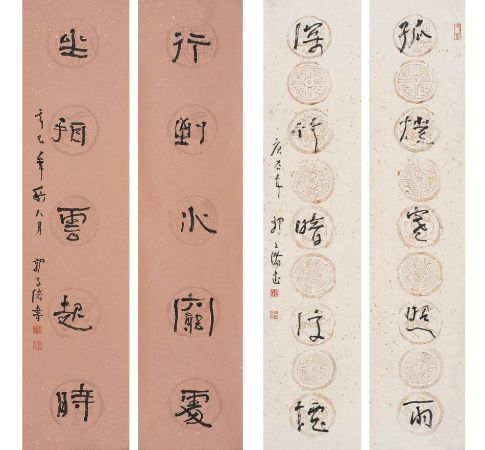 孤燈寒照雨
深竹暗浮煙
郭子緒書
行到水窮處
坐看雲起時
巳年秋八月 郭子緒書